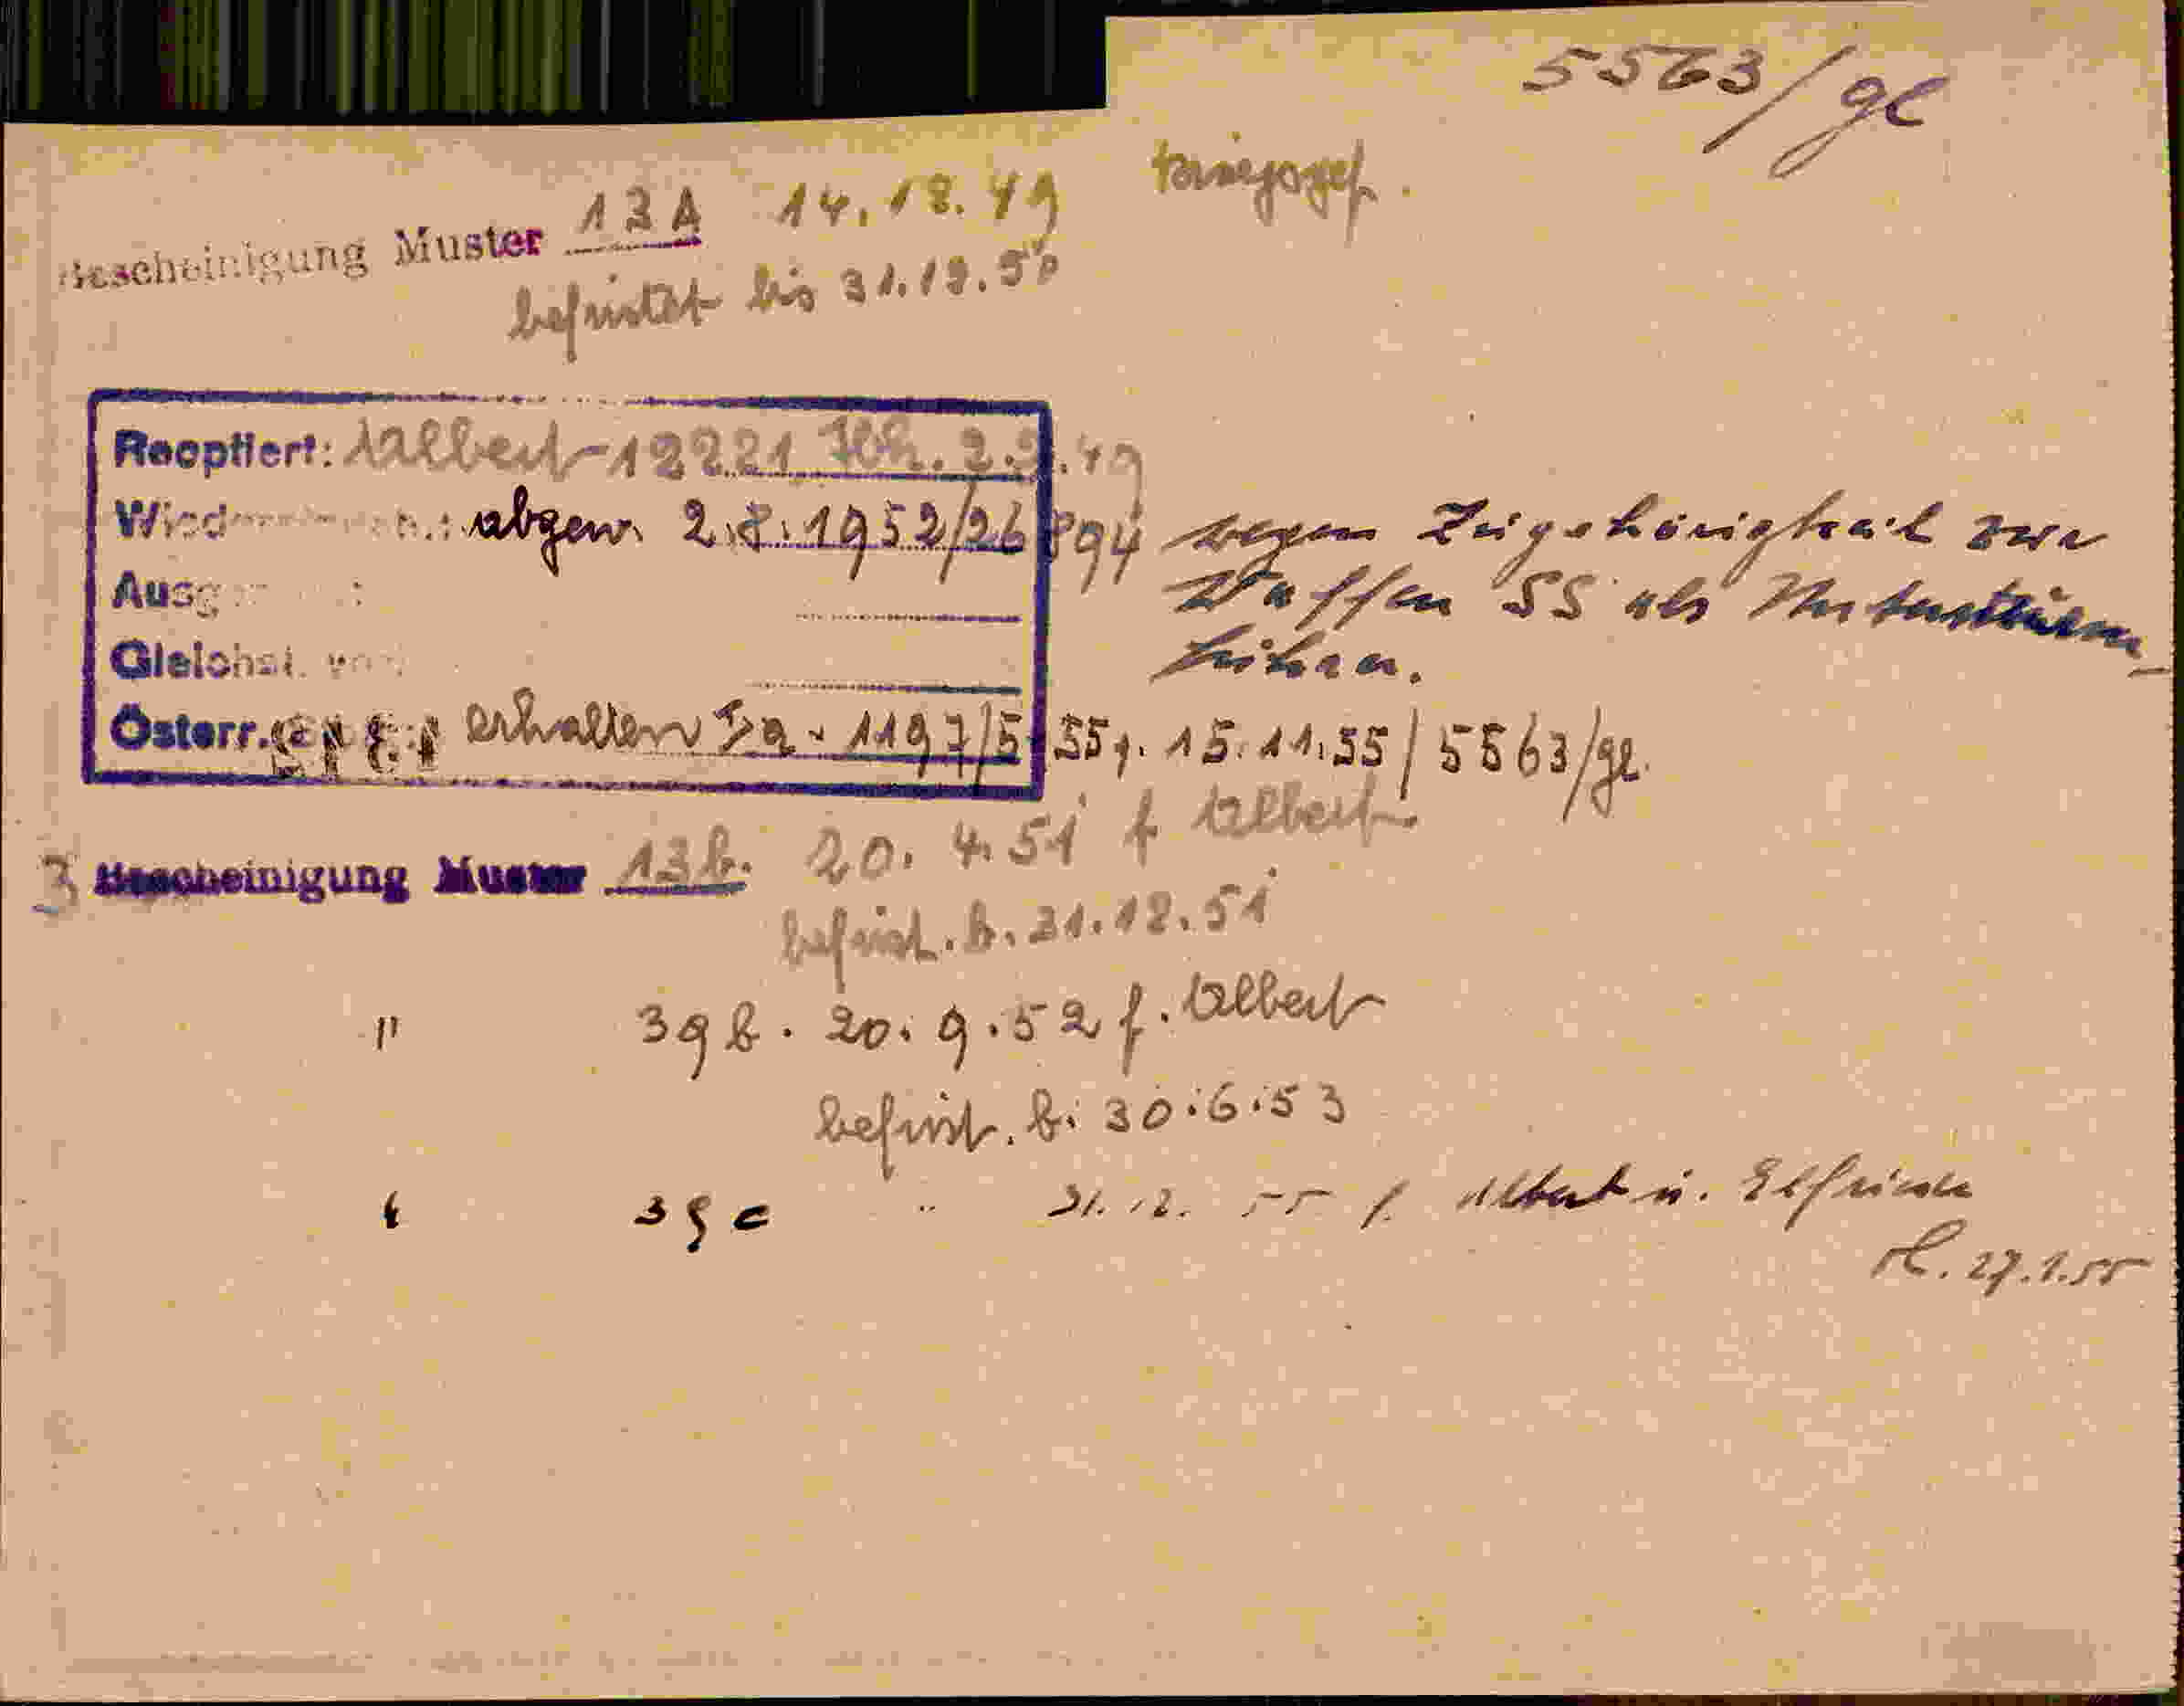 5563/gl
Kriegsgef.
Bescheinigung Muster 13A 14.12.49
befristet bis 31.12.50
Reoptiert: Albert 12221 2.9.49
abgew. 2.8.1952/26894 wegen Zugehörigkeit zur
Waffen SS als Untersturm-
führer.
Österr. erhalten Ia-1197/5 55, 15.11.55/5563/gl.
3 Bescheinigung Muster 13b. 20.4.51 f. Albert
befrist. b. 31.12.51
" 39b. 20.9.52 f. Albert
befrist. b. 30.6.53
" 39c " 31.12.55 f. Albert u. Elfriede
27.1.55